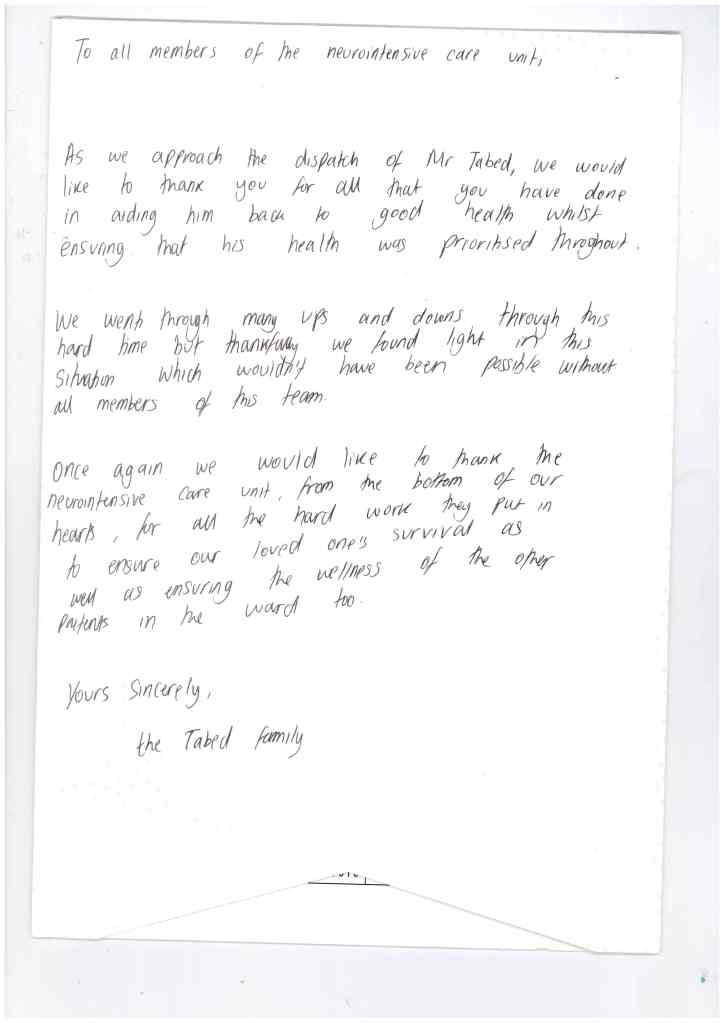 To all members of the neurointensive care unit,
As we approach the dispatch of Mr Tabed, we would
like to thank you for all that you have done
in aiding him back to good health whilst
ensuring that his health was prioritised throghout.
We went through many ups and downs through this
hard time but thankfully we found light in this
situation which wouldn't have been possible without
all members of this team.
Once again we would like to thank the
neurointensive care unit, from the bottom of our
hearts, for all the hard work they put in
to ensure our loved one's survival as
well as ensuring the wellness of the other
patients in the ward too.
Yours sincerely,
the Tabed family